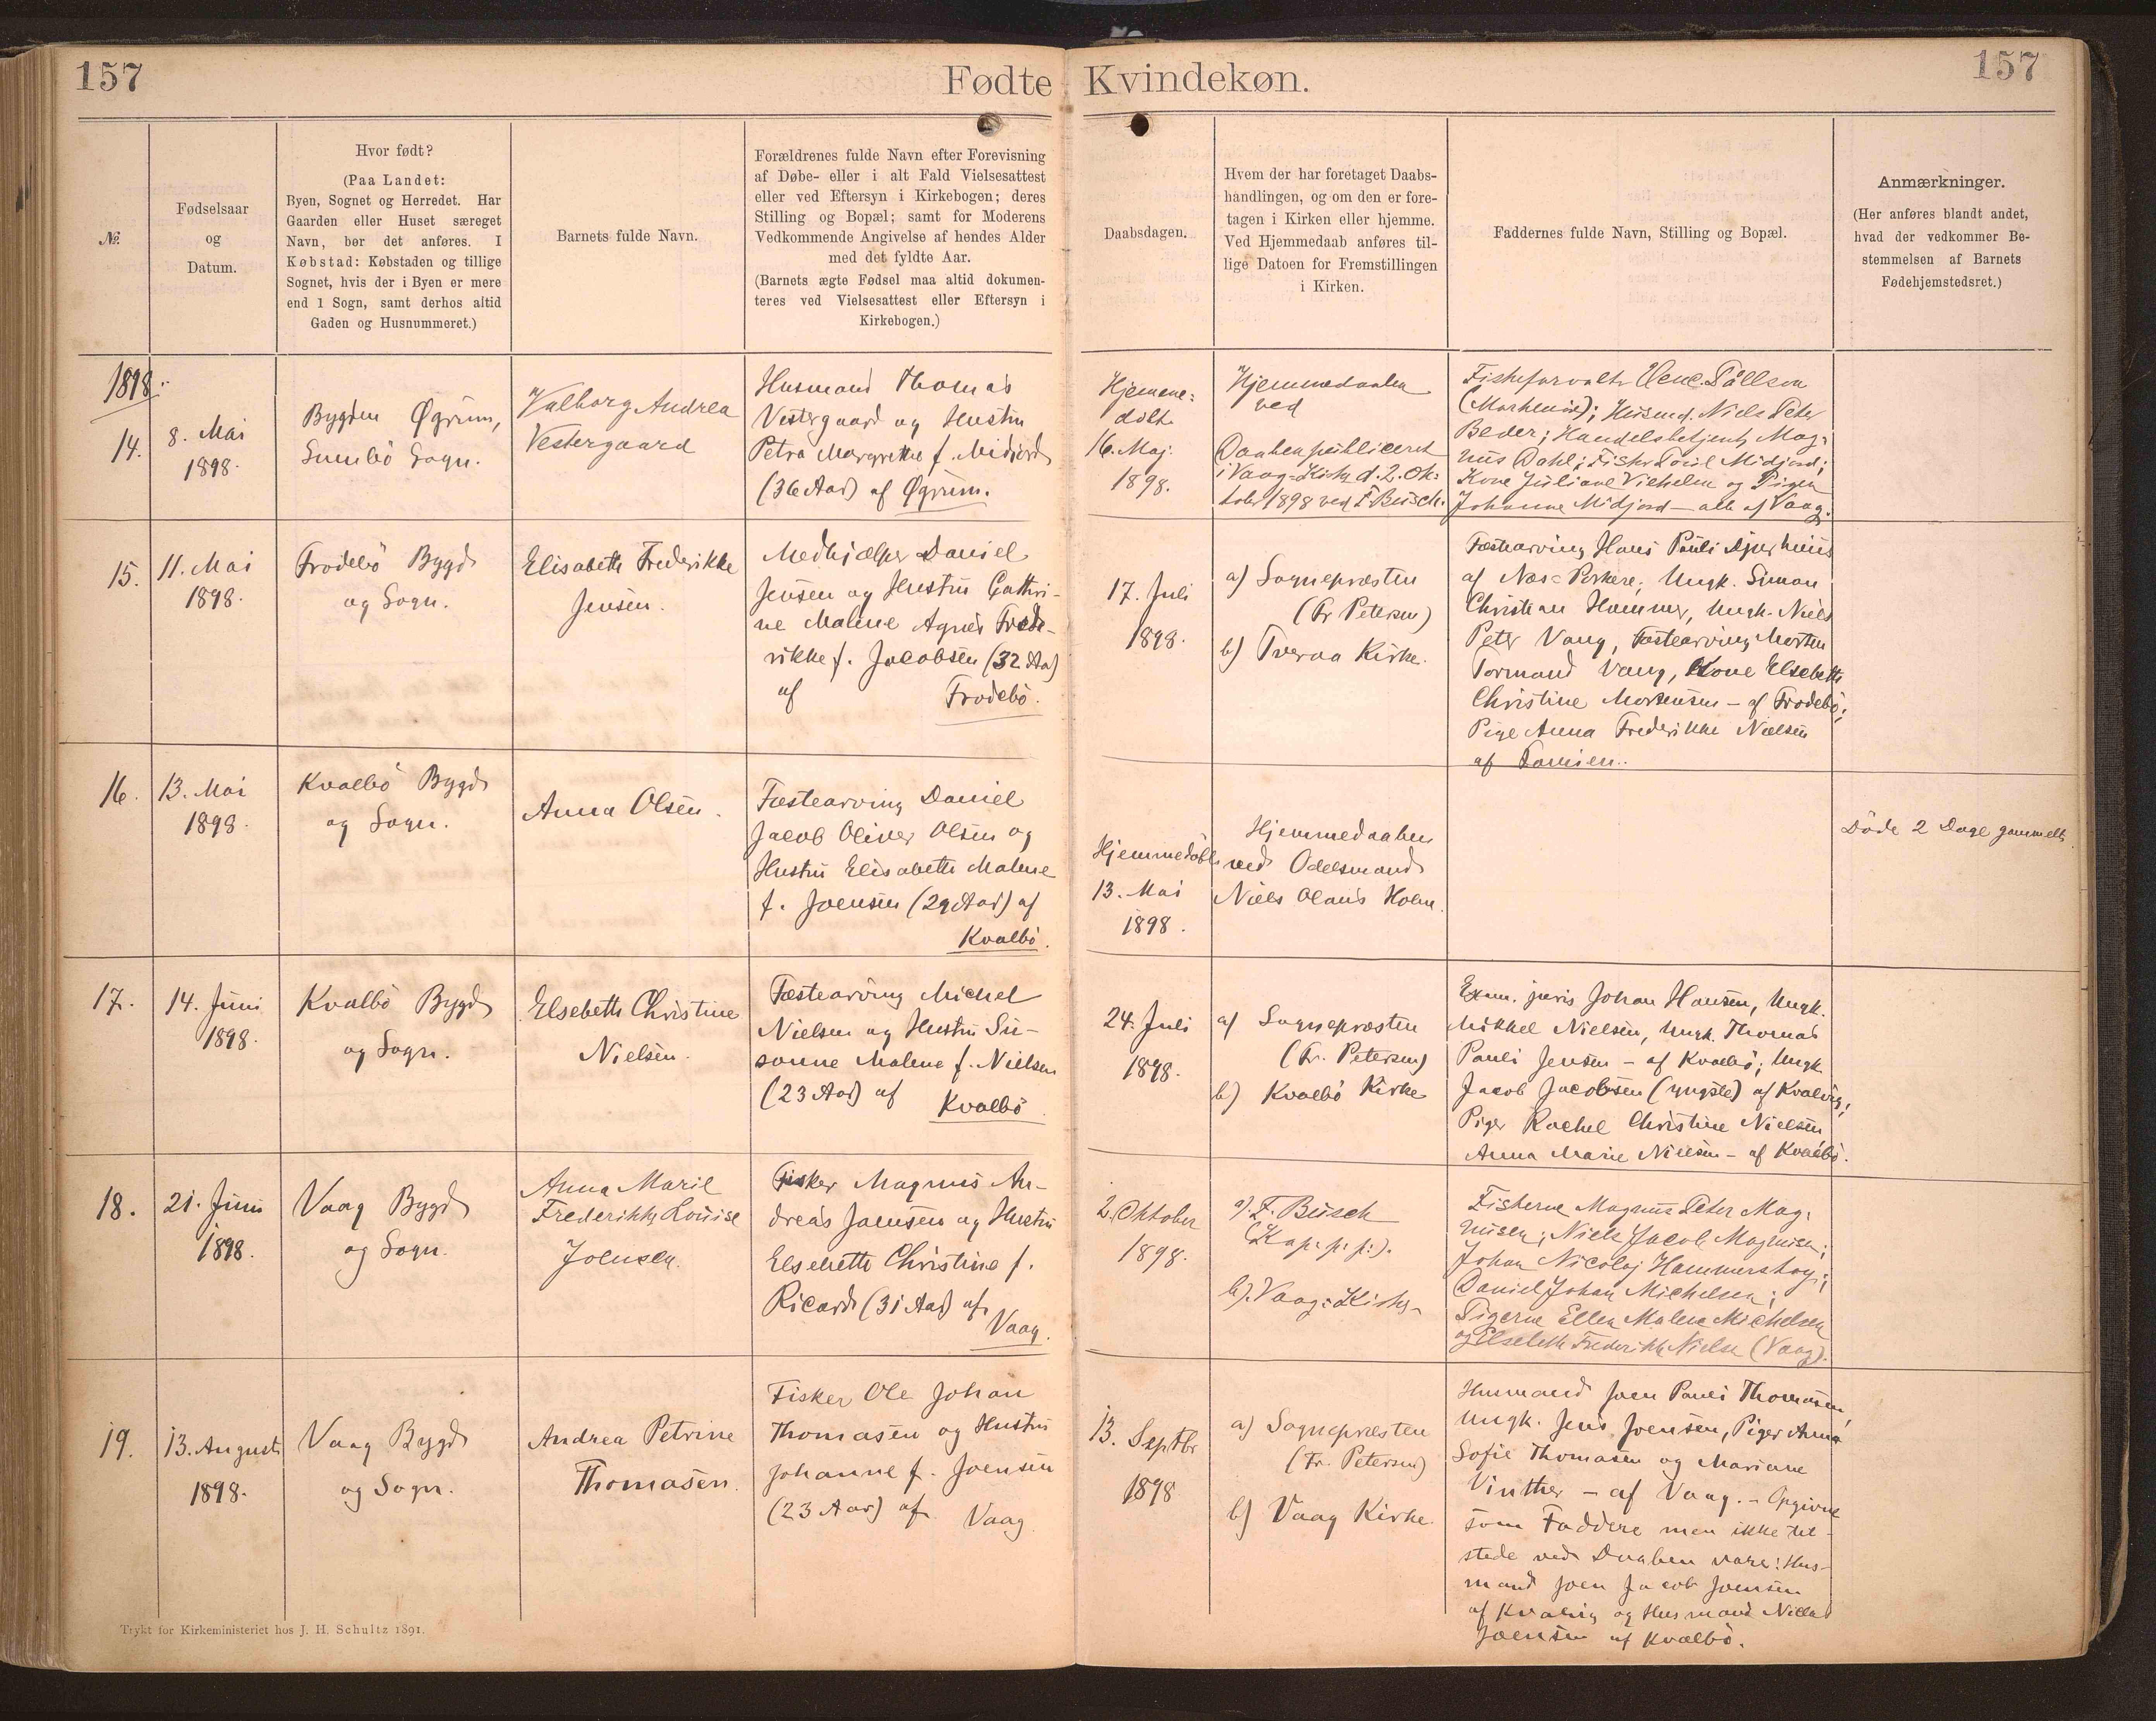 157
Fødte Kvindekøn.
157
№.
Fødselsaar
og
Datum.
Hvor født?
(Paa Landet:
Byen, Sognet og Herredet. Har
Gaarden eller Huset særeget
Navn, bør det anføres. I
Købstad: Købstaden og tillige
Sognet, hvis der i Byen er mere
end 1 Sogn, samt derhos altid
Gaden og Husnummeret.)
Barnets fulde Navn.
Forældrenes fulde Navn efter Forevisning
af Døbe- eller i alt Fald Vielsesattest
eller ved Eftersyn i Kirkebogen; deres
Stilling og Bopæl; samt for Moderens
Vedkommende Angivelse af hendes Alder
med det fyldte Aar.
(Barnets ægte Fødsel maa altid dokumen-
teres ved Vielsesattest eller Eftersyn i
Kirkebogen.)
Daabsdagen.
Hvem der har foretaget Daabs-
handlingen, og om den er fore-
tagen i Kirken eller hjemme.
Ved Hjemmedaab anføres til-
lige Datoen for Fremstillingen
i Kirken.
Faddernes fulde Navn, Stilling og Bopæl.
Anmærkninger.
(Her anføres blandt andet,
hvad der vedkommer Be-
stemmelsen af Barnets
Fødehjemstedsret.)
1898.
14.
8. Mai
1898.
Bygden Øgrum,
Sumbö Sogn.
Valborg Andrea
Vestergaard
Husmand Thomas
Vestergaard og Hustru
Petra Margrethe f. Midjord
(36 Aar) af Øgrum.
Hjemme=
döbt
16. Maj.
1898.
Hjemmedaaben
ved
Daaben publiceret
i Vaag=Kirke d. 2. Ok=
tober 1898 ved F. Busch.
Pållson
Husmd. Niels Peter
Beder; Handelsbetjent Mag=
nus Dahl; Fisker Poul Midjord;
Kone Juliane Vilhelm og Pigen
Johanne Midjord – alle af Vaag.
15.
11. Mai
1898.
Frodebö Bygd
og Sogn.
Elisabeth Frederikke
Jensen.
Medhjælper Daniel
Jensen og Hustru Cathri-
ne Malene Agnes Frede-
rikke f. Jacobsen (32 Aar)
af Frodebö.
17. Juli
1898.
a) Sognepræsten
(Fr Petersen)
b) Tveraa Kirke.
Fæstearving Hans Pauli Djurhuus
af Næs=Porkere; Ungk. Simon
Christian Hammer, Ungk. Niels
Peter Vang, Fæstearving Morten
Tormand Vang, Kone Elsebeth
Christine Mortensen – af Frodebö;
Pige Anna Frederikke Nielsen
af Famien.
16.
13. Mai
1898.
Kvalbö Bygd
og Sogn.
Anna Olsen.
Fæstearving Daniel
Jacob Oliver Olsen og
Hustru Elisabeth Malene
f. Joensen (29 Aar) af
Kvalbö.
Hjemmedöbt
13. Mai
1898.
Hjemmedaaben
ved Odelsmand
Niels Olaus Holm.
Döde 2 Dage gammelt.
17.
14. Juni
1898.
Kvalbö Bygd
og Sogn.
Elsebeth Christine
Nielsen.
Fæstearving Michel
Nielsen og Hustru Su-
sanne Malene f. Nielsen
(23 Aar) af Kvalbö.
24. Juli
1898.
a) Sognepræsten
(Fr. Petersen)
b) Kvalbö Kirke
Exam. juris Johan Hansen, Ungk.
Mikkel Nielsen, Ungk. Thomas
Pauli Jensen – af Kvalbö; Ungk
Jacob Jacobsen (yngste) af Kvalvig;
Piger Rachel Christine Nielsen
Anna Marie Nielsen – af Kvalbö.
18.
21. Juni
1898.
Vaag Bygd
og Sogn.
Anna Marie
Frederikke Louise
Joensen.
Fisker Magnus An-
dreas Joensen og Hustru
Elsebeth Christine f.
Ricard (31 Aar) af
Vaag.
2. Oktober
1898.
a). F. Busch
(Kap. p. p.).
b). Vaag=Kirke
Fiskerne Magnus Peter Mag=
nusen; Niels Jacob Magnusen;
Johan Nicolaj Hammershög;
Daniel Johan Michelsen;
Pigerne Ellen Malene Michelsen
og Elsebeth Frederikke Nielsen (Vaag).
19.
13. August
1898.
Vaag Bygd
og Sogn.
Andrea Petrine
Thomasen.
Fisker Ole Johan
Thomasen og Hustru
Johanne f. Joensen
(23 Aar) af Vaag
13. Septbr
1898
a) Sognepræsten
(Fr. Petersen)
b) Vaag Kirke.
Husmand Joen Pauli Thomasen,
Ungk. Jens Joensen, Piger Anna
Sofie Thomasen og Mariane
Vinther – af Vaag. – Opgivne
som Faddere men ikke til-
stede ved Daaben vare: Hus-
mand Joen Jacob Joensen
af Kvalvig og Husmand Niclas
Joensen af Kvalbö.
Trykt for Kirkeministeriet hos J. H. Schultz 1891.